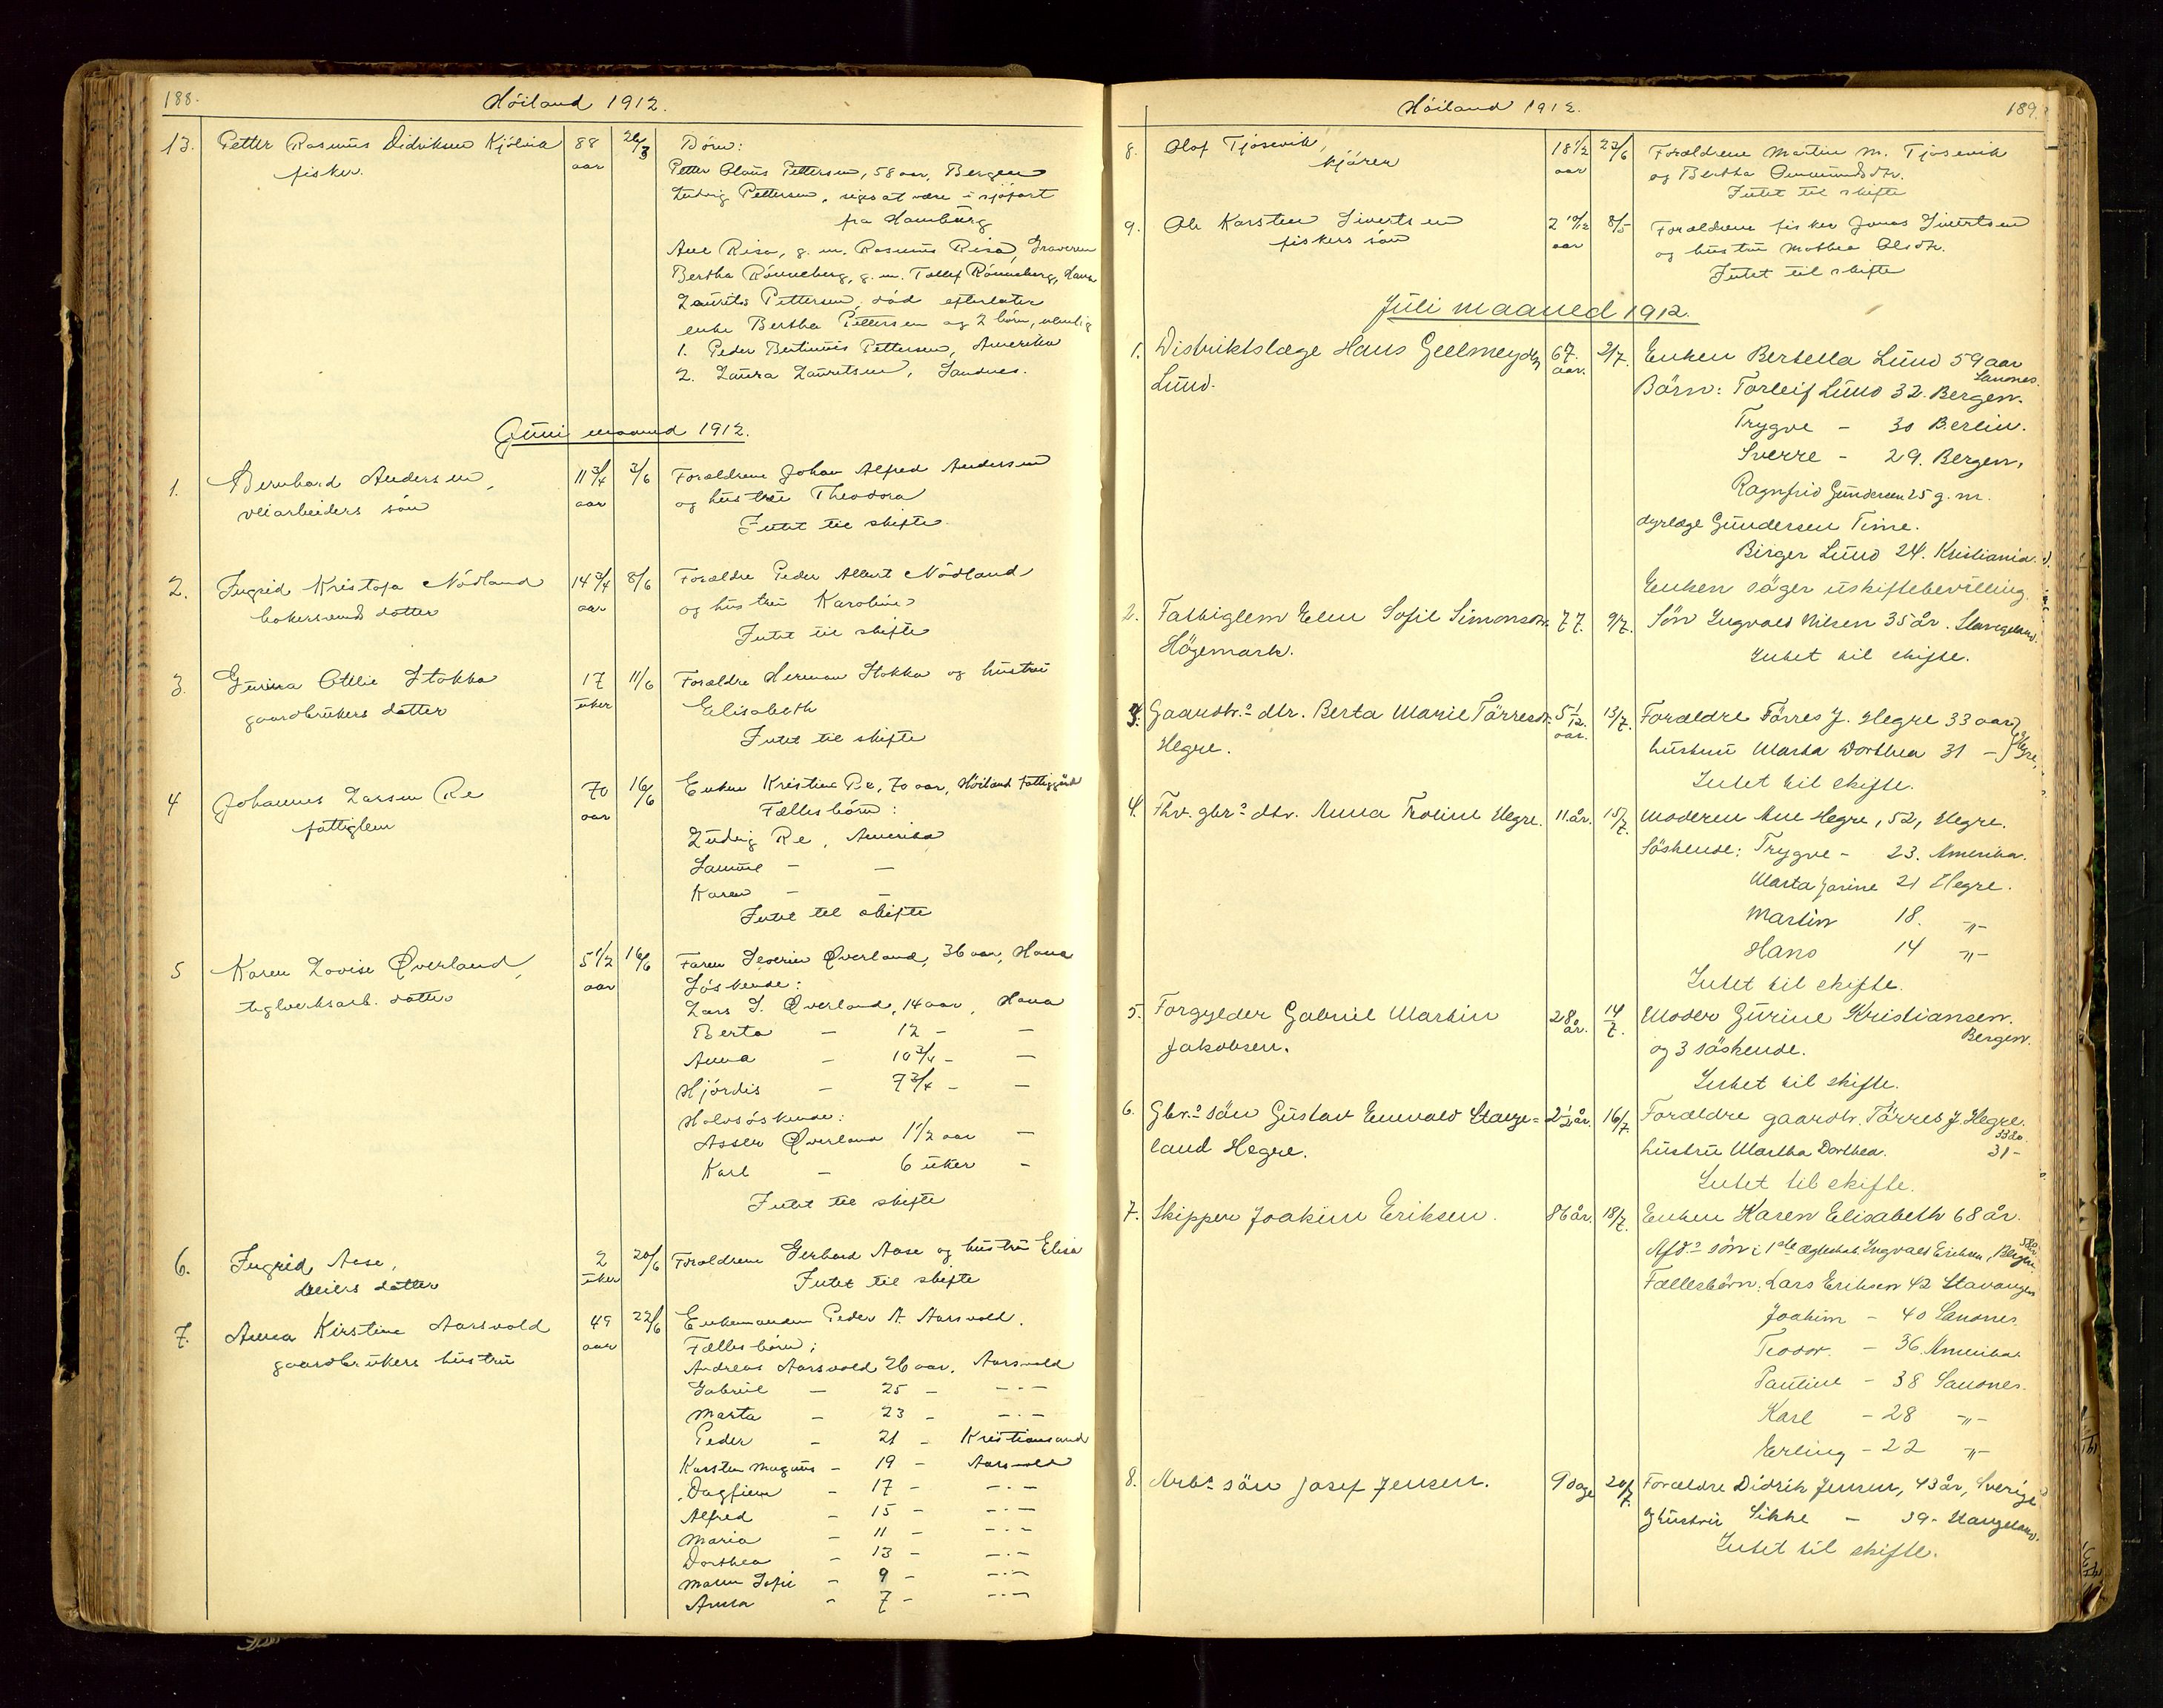 188.
Höiland 1912.
13. Petter Rasmus Didriksen Kjölvia 88 26/3 Börn:
fisker. aar
Petter Olaus Pettersen, 58 aar, Bergen
Ludvig Pettersen, siges at være i sjöfart
fra Hamburg
Ane Risa, g. m. Rasmus Risa, Graveren
Bertha Rönneberg, g. m. Tollef Rönneberg, Hana
Laurits Pettersen, död efterlater
enke Bertha Pettersen og 2 börn, nemlig
1. Peder Bertinius Pettersen, Amerika
2. Laura Lauritsen, Sandnes.
Juni maaned 1912.
1. Bernhard Andersen, 11 3/4 3/6 Forældrene Johan Alfred Andersen
veiarbeiders sön aar og hustru Theodora
Intet til skifte.
2. Ingrid Kristofa Nödland 14 3/4 8/6 Forældre Peder Albert Nödland
bakersvends datter aar og hustru Karoline
Intet til skifte
3. Gurina Otilie Stokka 17 11/6 Forældre Herman Stokka og hustru
gaardbrukers datter uker Elisabeth
Intet til skifte
4 Johannes Larsen Re 70 16/6 Enken Kristine Re, 70 aar, Höiland fattiggård
fattiglem aar Fællesbörn:
Ludvig Re, Amerika
Samuel - -
Karen - -
Intet til skifte
5 Karen Lovise Øverland, 5 1/2 16/6 Faren Severin Øverland, 36 aar, Hana
teglverksarb. datter aar Söskende:
Lars S. Øverland, 14 aar, Hana
Berta - 12 - -
Anna - 10 3/4 - -
Hjördis - 7 3/4 - -
Halvsöskende:
Asser Øverland 1 1/2 aar -
Karl - 6 uker -
Intet til skifte
6. Ingrid Aase, 2 20/6 Forældrene Gerhard Aase og hustru Elisa
Meiers datter uker Intet til skifte
7. Anna Kirstine Aarsvold 49 22/6 Enkemanden Peder A. Aarsvold.
gaardbrukers hustru aar Fællesbörn:
Andreas Aarsvold 26 aar, Aarsvold
Gabriel - 25 - -.-
Marta - 23 - -.-
Peder - 21 - Kristiansand
Karsten Magnus - 19 - Aarsvold
Dagfinn - 17 - -.-
Alfred - 15 - -.-
Maria - 11 - -.-
Dorthea - 13 - -.-
Maren Sofie - 9 - -.-
Anna - 7 - -.-
Höiland 1912.
189.
8. Olaf Tjosevik, 18 1/2 22/6 Forældrene Martin M. Tjosevik
kjörer aar og Bertha Gunmundsdtr.
Intet til skifte
9. Ole Karsten Sivertsen 2 10/12 8/5 Forældrene fisker Jonas Sivertsen
fiskers sön aar og hustru Mathea Olsdtr.
Intet til skifte
Juli maaned 1912.
1. Distriktslæge Hans Geelmeyden 67 2/7. Enken Bertella Lund 59 aar
Lund. aar. Sandnes.
Börn: Torleif Lund 32. Bergen.
Trygve - 30 Berlin.
Sverre - 29. Bergen.
Ragnfrid Gundersen 25 g. m.
dyrlæge Gundersen Time.
Birger Lund 24. Kristiania.
Enken söger uskiftebevilling.
2. Fattiglem Elen Sofie Simonsdtr. 77. 9/7. Sön Ingvald Nilsen 35 år. Stangeland.
Högemark. Intet til skifte.
3. Gaardbr.s dtr. Berta Marie Törresdr. 5 1/12 13/7. Forældre Törres J. Hegre 33 aar
Hegre. aar. hustru Marta Dorthea 31 - Hegre,
Intet til skifte.
4. Fhv. gbr.s dtr. Anna Troline Hegre. 11. år. 15/7. Moderen Ane Hegre, 52, Hegre.
Söskende: Trygve - 23. Amerika.
Marta Jorine 21 Hegre.
Martin 18. -"-
Hans 14 -"-
Intet til skifte.
5. Forgylder Gabriel Martin 28 år. 14/7. Moder Gurine Kristiansen.
Jakobsen. Bergen.
og 3 söskende.
Intet til skifte.
6. Gbr.s sön Gustav Enevald Stange= 2 1/2 år. 16/7. Forældre gaardbr. Törres J. Hegre.
land Hegre. 33 år.
hustru Martha Dorthea. 31 -
Intet til skifte.
7. Skipper Joakim Eriksen. 86 år. 18/7. Enken Karen Elisabeth 68 år.
Afd.s sön i 1ste ægteskab Ingvald Eriksen, Bergen.
Fællesbörn: Lars Eriksen 42 Stavanger
Joakim - 40 Sandnes.
Teodor. - 36. Amerika.
Pauline - 38 Sandnes.
Karl - 28 -"-
Erling - 22 -"-
8. Arb.s sön Josef Jensen. 9 dage 20/7. Forældre Didrik Jensen, 43 år, Sverige
og hustru Sikke - 39 - Stangeland.
Intet til skifte.